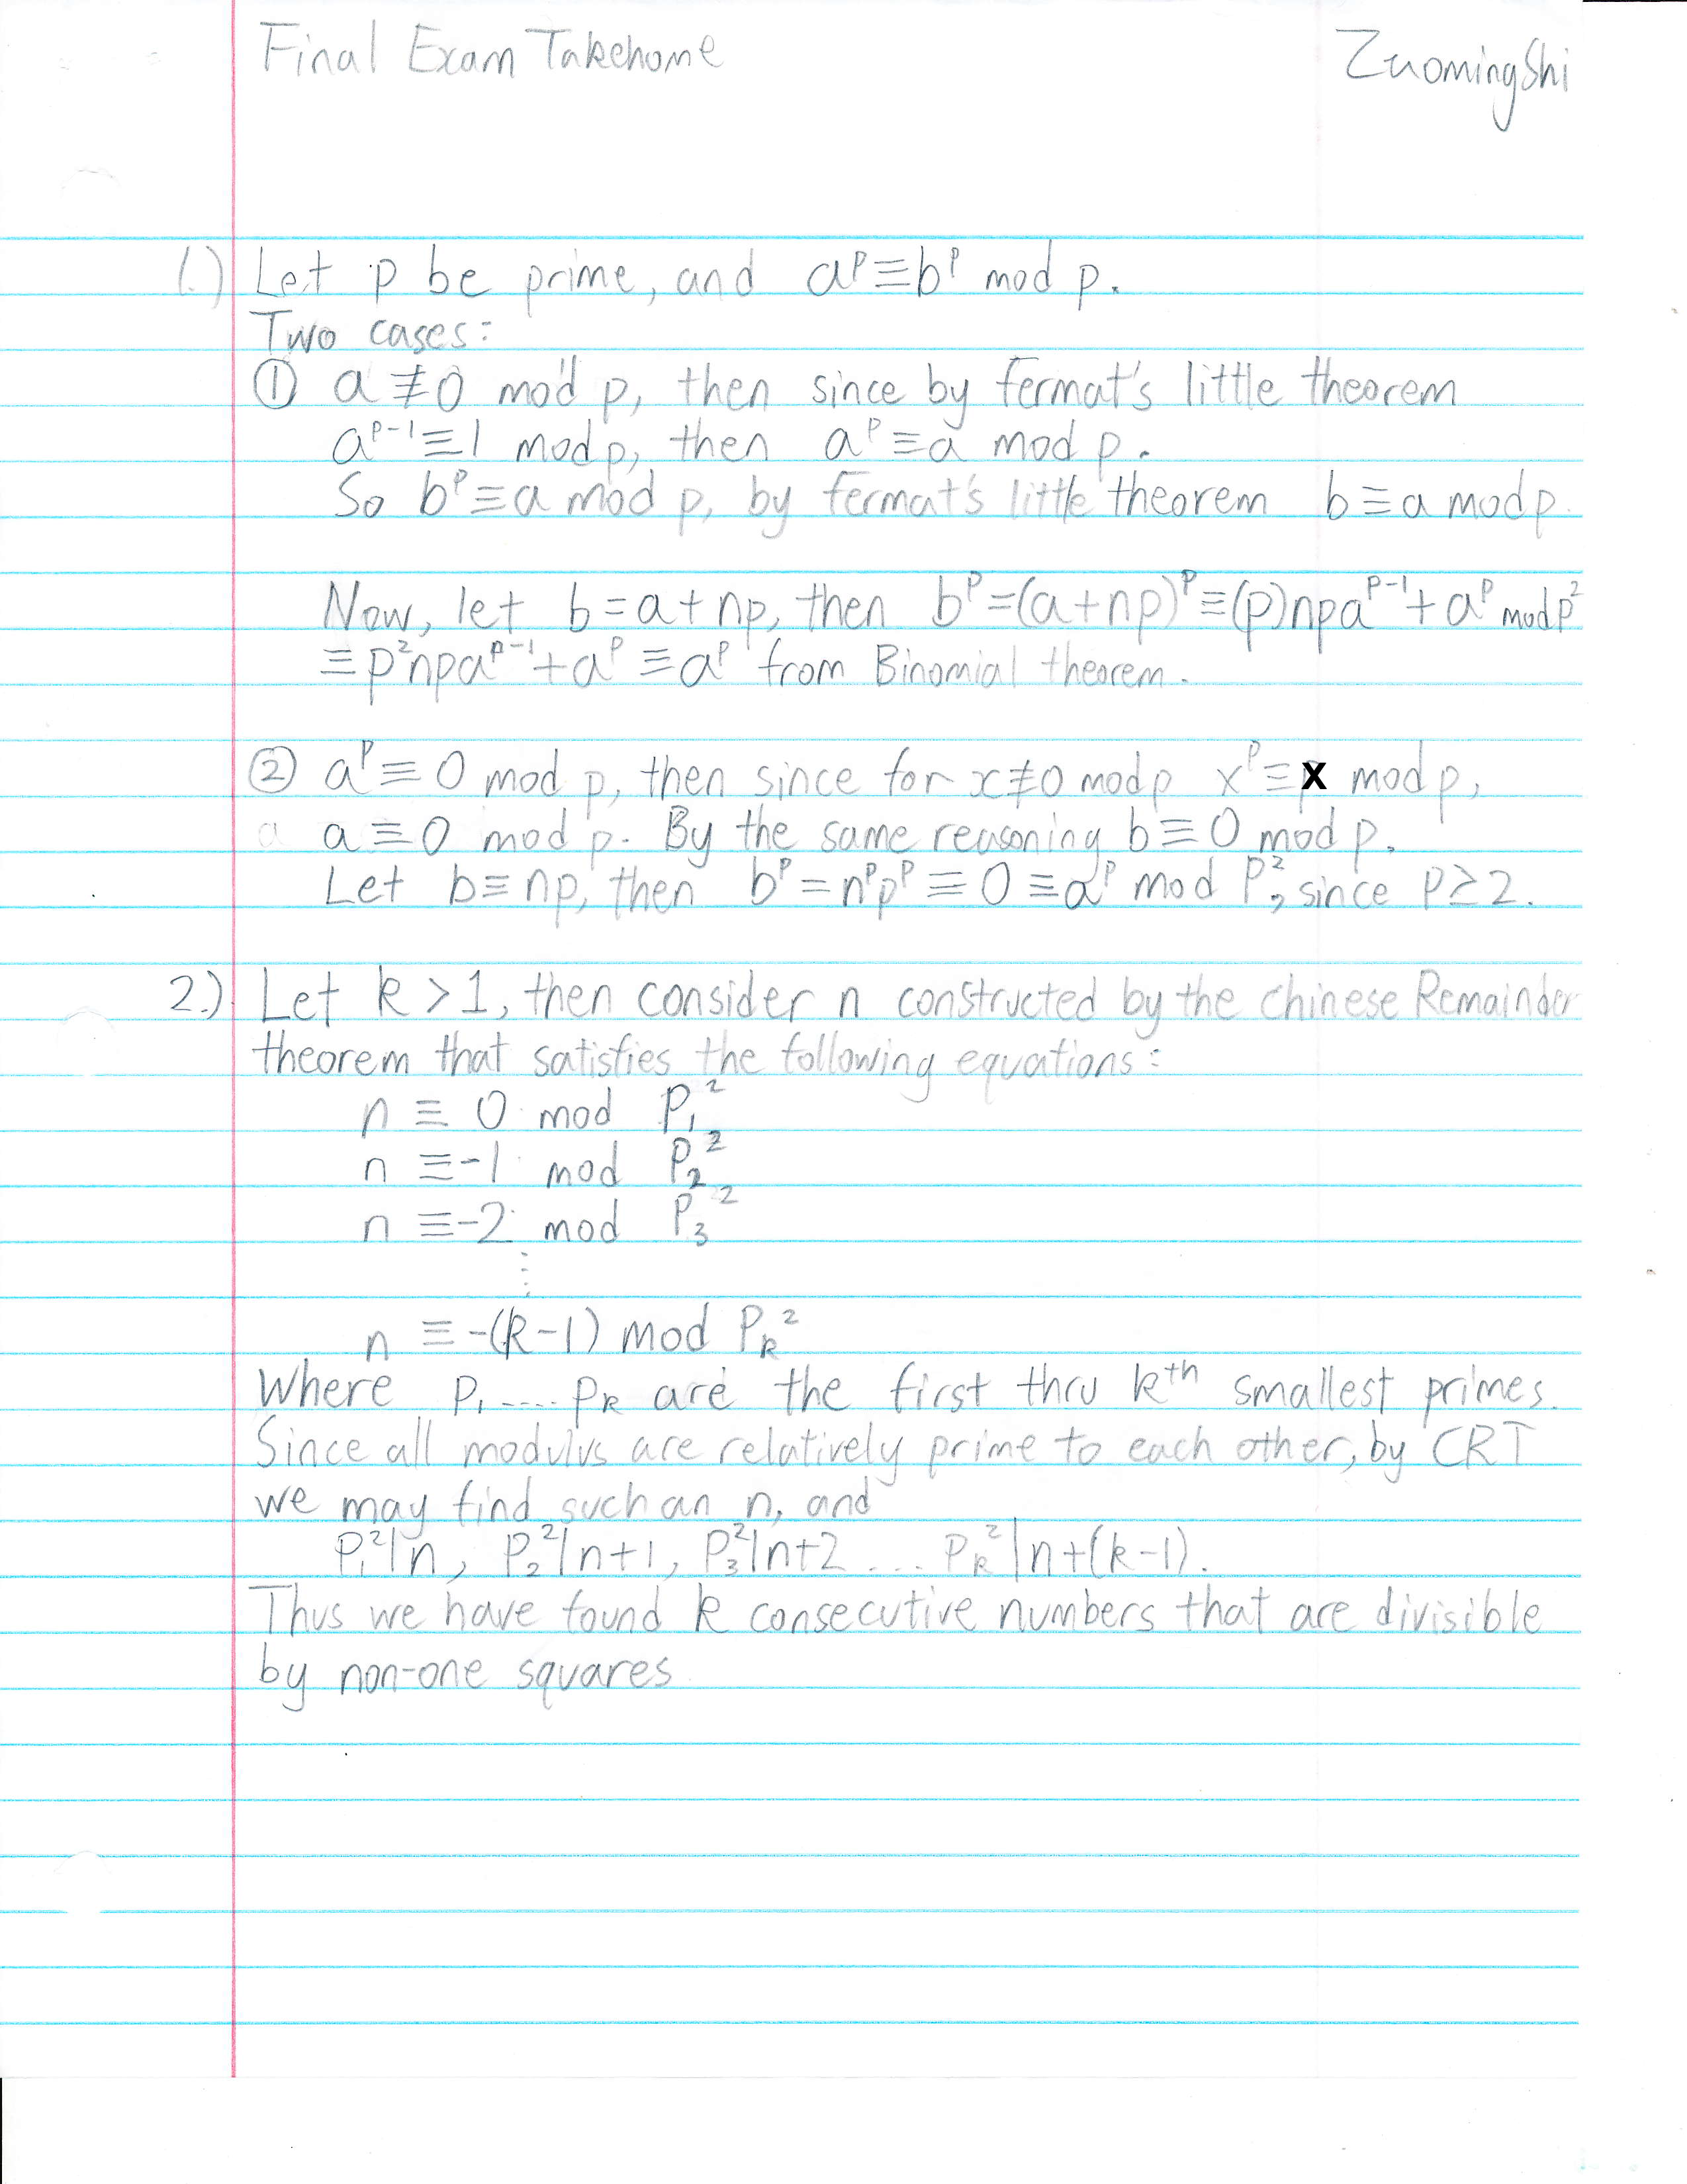 Final Exam Takehome Zuoming Shi
1.) Let p be prime, and aᵖ≡bᵖ mod p.
Two cases:
① a≢0 mod p, then since by fermat's little theorem
aᵖ⁻¹≡1 mod p, then aᵖ≡a mod p.
So bᵖ≡a mod p, by fermat's little theorem b≡a mod p.
Now, let b=a+np, then bᵖ=(a+np)ᵖ≡(p)npaᵖ⁻¹+aᵖ mod p²
≡p²npaᵖ⁻¹+aᵖ≡aᵖ from Binomial theorem.
② aᵖ≡0 mod p, then since for x≢0 mod p xᵖ≡x mod p,
a a≡0 mod p. By the same reasoning b≡0 mod p.
Let b=np, then bᵖ=nᵖpᵖ≡0≡aᵖ mod p², since p≥2.
2.) Let k>1, then consider n constructed by the Chinese Remainder
theorem that satisfies the following equations:
n ≡ 0 mod P₁²
n ≡ -1 mod P₂²
n ≡ -2 mod P₃²
⋮
n ≡ -(k-1) mod Pₖ²
Where p₁ .... pₖ are the first thru kᵗʰ smallest primes.
Since all modulus are relatively prime to each other, by CRT
we may find such an n, and
P₁²|n, P₂²|n+1, P₃²|n+2 .... Pₖ²|n+(k-1).
Thus we have found k consecutive numbers that are divisible
by non-one squares